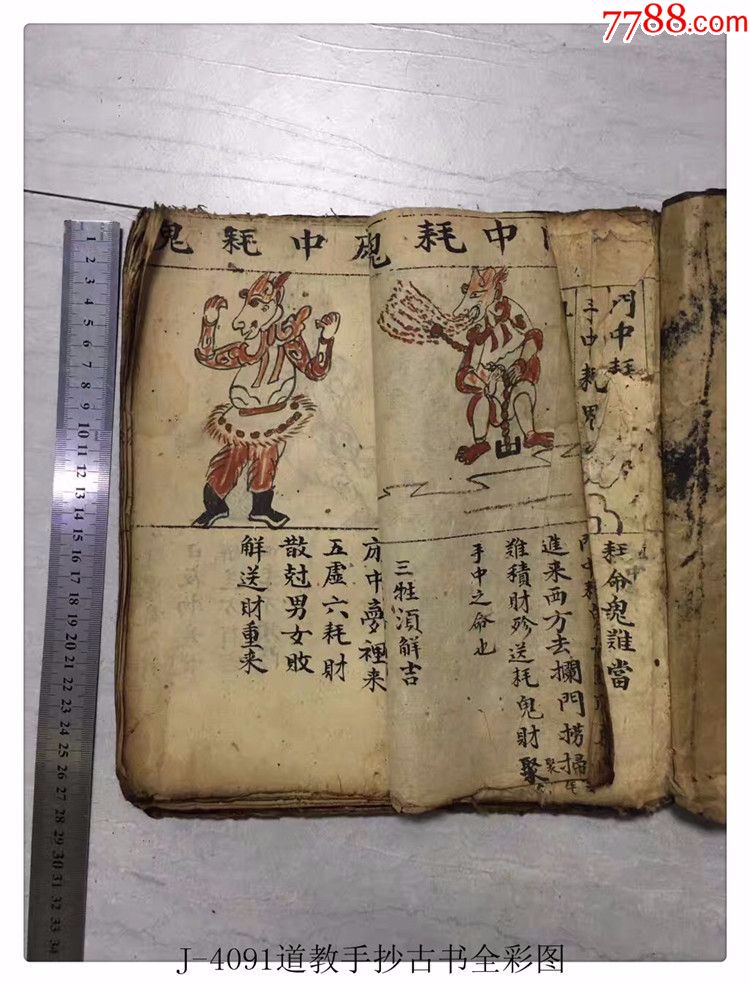 7788.com
門中耗
耗命鬼難當
中耗
進来西方去攔門撈掃
難積財殄送耗鬼財聚
手中之命也
三牲湏解吉
中耗鬼
中夢裡来
五虛六耗財
散尅男女敗
解送財重来
1
2
3
4
5
6
7
8
9
10
11
12
13
14
15
16
17
18
19
20
21
22
23
24
25
26
27
28
29
30
31
32
33
34
J-4091道教手抄古书全彩图